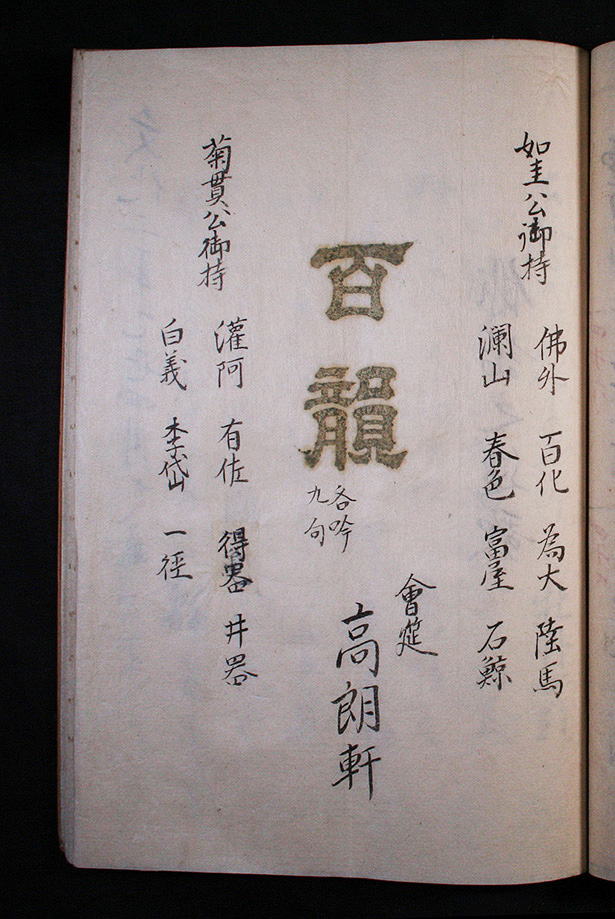 如圭公御持
佛外 百化 為大 陸馬
瀾山 春色 富屋 石鯨
百韻
各吟
九句
會筵
高朗軒
菊貫公御持
灌阿 有佐 得器 井器
白義 李岱 一徑